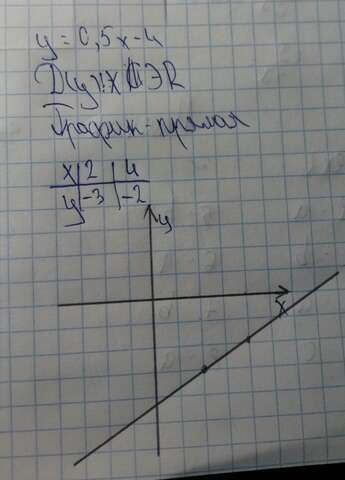 y = 0,5x-4
D(y): X Э R
График - прямая
x 2 4
y -3 -2
y
x